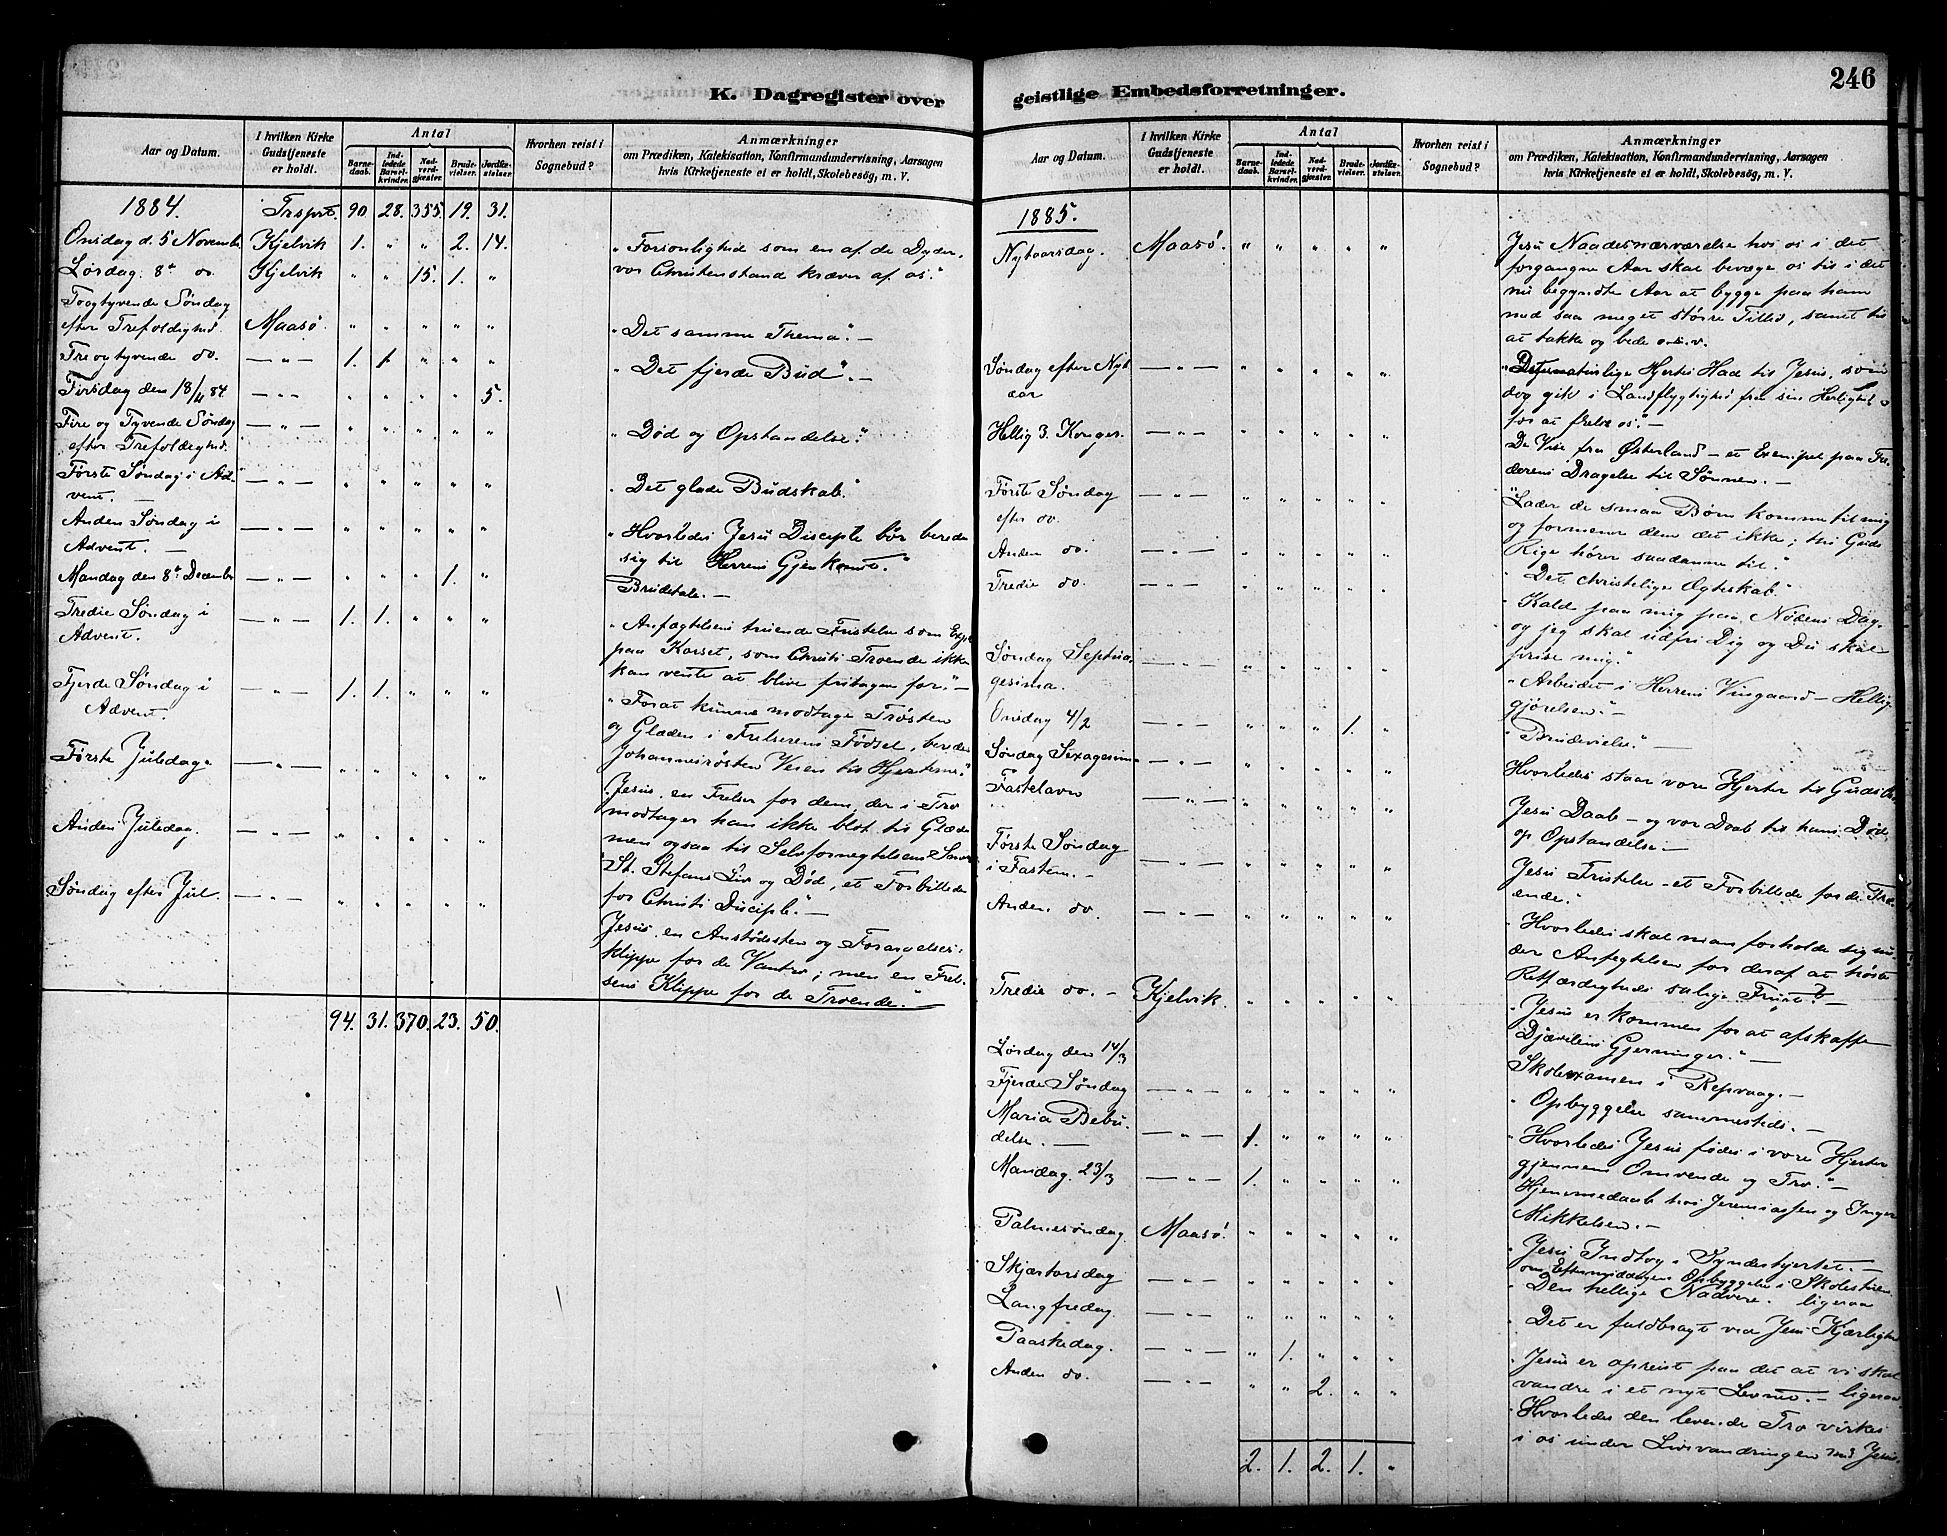 246
K. Dagregister over
geistlige Embedsforretninger.
Aar og Datum.
I hvilken Kirke Gudstjeneste er holdt.
Antal
Barnedaab.
Indledede Barselkvinder.
Nadverdgjester.
Brudevielser.
Jordfæstelser.
Hvorhen reist i Sognebud?
Anmærkninger
om Prædiken, Katekisation, Konfirmandundervisning, Aarsagen
hvis Kirketjeneste ei er holdt, Skolebesøg, m. V.
1884. Trsprt. 90 28. 355. 19. 31.
Onsdag d. 5 Novemb. Kjelvik 1. " " 2. 14. "Forsonlighed som en af de Dyder,
Lørdag 8de do. Kjelvik " " 15. 1. " vor Christenstand kræver af os."
Toogtyvende Søndag
efter Trefoldighed. Maasø. " " " " " "Det samme Thema". —
Treogtyvende do. — " — 1. 1 " " " "Det fjerde Bud". —
Tirsdag den 18/11 84 — " — " " " " 5.
Fire og Tyvende Søndag — " — " " " " " "Død og Opstandelse."
efter Trefoldighed.
Første Søndag i Ad- — " — " " " " " "Det glade Budskab."
vent. —
Anden Søndag i — " — " " " " " "Hvorledes Jesu Disciple bør berede
Advent. — sig til Herrens Gjenkomst."
Mandag den 8de Decembr — " — " " " 1. " Brudetale. —
Tredie Søndag i — " — 1. 1. " " " "Anfægtelsens truende Fristelse som
Advent. paa Korset, som Christi Troende ikke
kan vente at blive fritagen for." —
Fjerde Søndag i — " — 1. 1. " " " "For at kunne modtage Trøsten
Advent. og Glæden i Frelserens Fødsel, bereder
Johannesrøsten Veien til Hjerterne."
Første Juledag — " — " " " " " "Jesus, en Frelser for dem, der i Tro
modtager ham ikke blot til Glæde
Anden Juledag. — " — " " " " " men ogsaa til Selvfornegtelsens
"St. Stefans Liv og Død, et Forbillede
Søndag efter Jul. — " — " " " " " for Christi Disciple." —
Jesus, en Anstødssten og Forargelses-
klippe for de Vantro; men en Frel-
sens Klippe for de Troende."
94. 31. 370. 23. 50.
Aar og Datum.
I hvilken Kirke Gudstjeneste er holdt.
Antal
Barnedaab.
Indledede Barselkvinder.
Nadverdgjester.
Brudevielser.
Jordfæstelser.
Hvorhen reist i Sognebud?
Anmærkninger
om Prædiken, Katekisation, Konfirmandundervisning, Aarsagen
hvis Kirketjeneste ei er holdt, Skolebesøg, m. V.
1885.
Nytaarsdag. Maasø. " " " " " Jesu Naadesnærværelse hos os i det
forgangne Aar skal bevæge os til i det
nu begyndte Aar at bygge paa ham
med saa meget større Tillid, samt til
at takke og bede o.s.v.
Søndag efter Nyt- — " — " " " " " naturlige Hjertes Had til Jesus, som
aar dog gik i Landflygtighed fra sin Herlighed
for at frelse os. —
Hellig 3 Konger. — " — " " " " " De Vise fra Østerland — et Exempel paa Fa-
derens Dragelse til Sønnen. —
Første Søndag — " — " " " " " "Lader de smaa Børn komme til mig
efter do. og formener dem det ikke; thi Guds
Anden do. — " — " " " " " Rige hører saadanne til."
Tredie do. — " — " " " " " "Det christelige Ægteskab."
"Kald paa mig paa Nødens Dag
og jeg skal udfri Dig og Du skal
Søndag Septua- — " — " " " " " prise mig."
gesima. "Arbeidet i Herrens Vingaard — Hellig-
gjørelsen." —
Onsdag 4/2 — " — " " " 1. " "Brudevielse." —
Søndag Sexagesima — " — " " " " " Hvorledes staar vore Hjerter til Guds
Fastelavn — " — " " " " " Jesu Daab — og vor Daab til hans Død
og Opstandelse —
Første Søndag — " — " " " " " Jesu Fristelse — et Forbillede for de Tro-
i Fasten. — ende."
Anden do. — " — " " " " " "Hvorledes skal man forholde sig un-
der Anfegtelsen for deraf at høste
Retfærdigheds salige Frugt?" —
Tredie do. — Kjelvik. " " " " " "Jesus er kommen for at afskaffe
Djævelens Gjerninger." —
Lørdag den 14/3 Skoleexamen i Repvaag. —
Fjerde Søndag — " — " " " " " "Opbyggelse sammesteds. —
Maria Bebu- — " — 1. " " " " "Hvorledes Jesus fødes i vore Hjerter
delse. — gjennem Omvende og Tro." —
Mandag 23/3 — " — 1. " " " " Hjemmedaab hos Jeremiassen og Inger
Mikkelsen. —
Palmesøndag Maasø. " " " " " "Jesu Indtog i Syndehjertet. —
om Eftermiddagen Opbyggelse i Skolestuen
Skjærtorsdag — " — " " " " " "Den hellige Nadvere. ligesaa
Langfredag. — " — " " " " " "Det er fuldbragt ved Jesu Kjærlighed
Paaskedag. — " — " 1. " " " "Jesus er opreist paa det at vi skal
vandre i et nyt Levnet. — ligesaa
Anden do. — " — " " 2. " " "Hvorledes den levende Tro virker
i os under Livsvandringen med Jesus.
2. 1. 2. 1. "